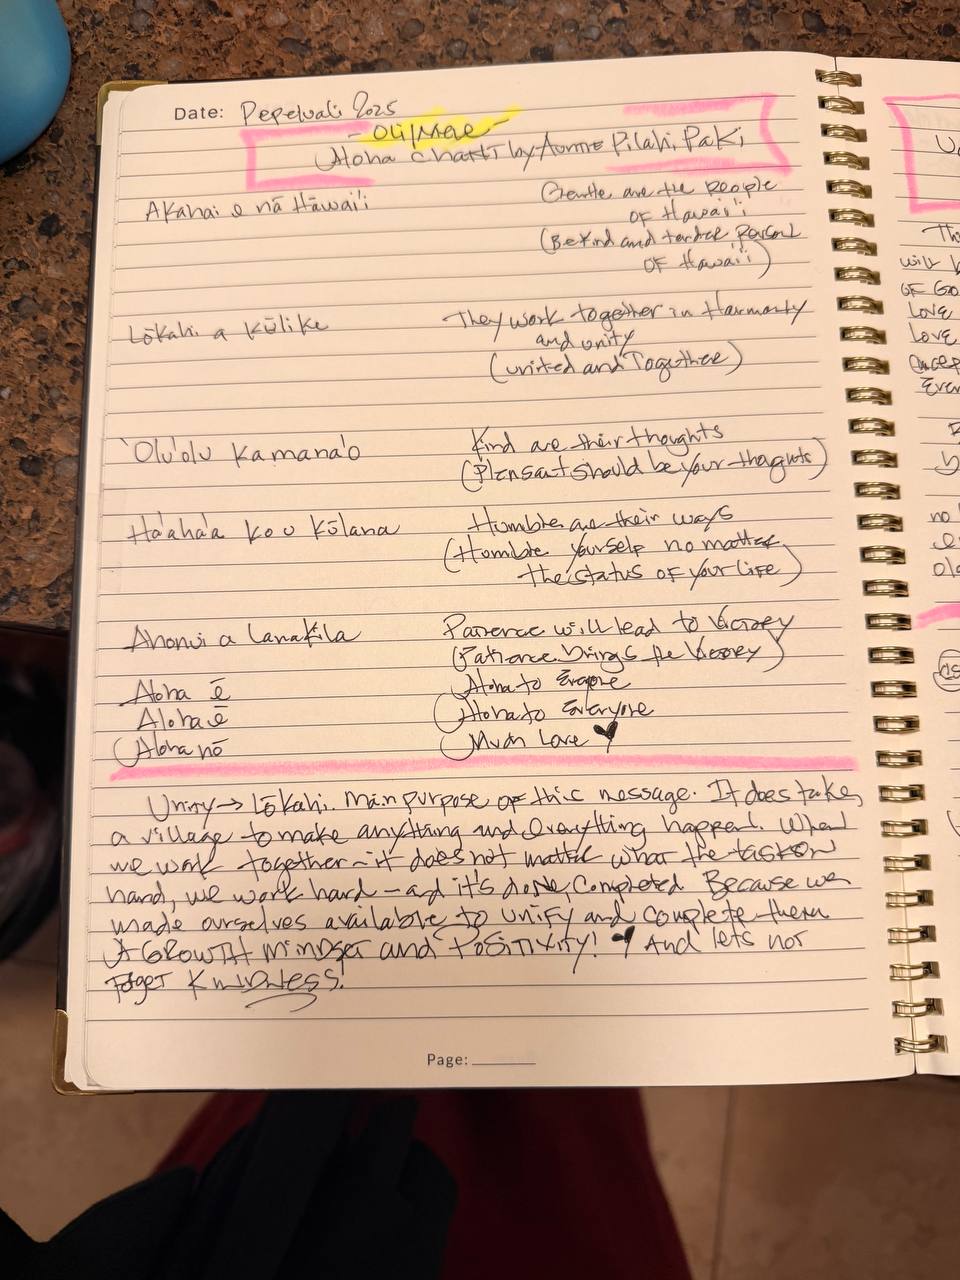 Date: Pepeluali 2025
- Oli/Mele -
Aloha chant by Auntie Pilahi Paki
Akahai e nā Hāwai'i
Gentle are the people
of Hawai'i
(Be kind and tender person
of Hawai'i)
Lōkahi a Kūlike
They work together in Harmony
and unity
(united and Together)
'Olu'olu Kamana'o
Kind are their thoughts
(Pleasant should be your thoughts)
Ha'aha'a Kou Kūlana
Humble are their ways
(Humble yourself no matter
the status of your life)
Ahonui a Lanakila
Patience will lead to Victory
(Patience brings the Victory)
Aloha ē
Aloha to Everyone
Aloha ē
Aloha to Everyone
Aloha nō
Much Love ♥
Unity → Lōkahi. Main purpose of this message. It does take
a village to make anything and everything happen. When
we work together - it does not matter what the task on
hand, we work hard - and it's done, completed Because we
made ourselves available to unify and complete them
A Growth mindset and Positivity! ♥ And lets not
forget Kindness.
Page:
Th
will b
of Go
Love
Love
Ever
no